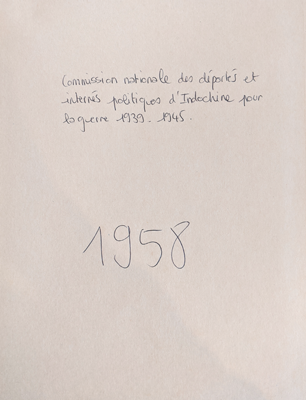 Commission nationale des déportés et
internés politiques d'Indochine pour
la guerre 1939-1945.
1958